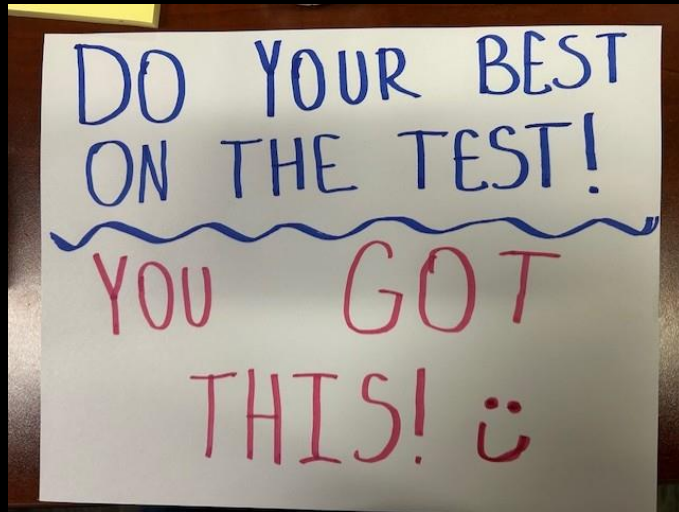 DO YOUR BEST
ON THE TEST!
YOU GOT
THIS! :)